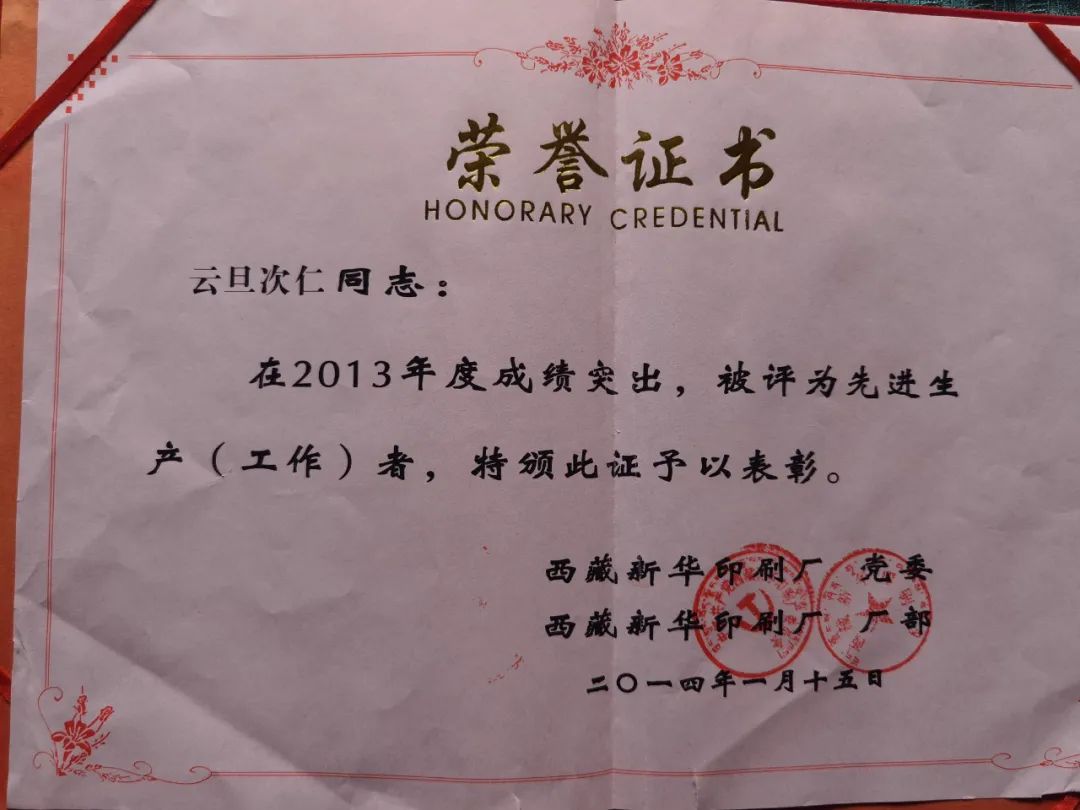 荣誉证书
HONORARY CREDENTIAL
云旦次仁同志：
在2013年度成绩突出，被评为先进生
产（工作）者，特颁此证予以表彰。
西藏新华印刷厂 党委
西藏新华印刷厂 厂部
二〇一四年一月十五日